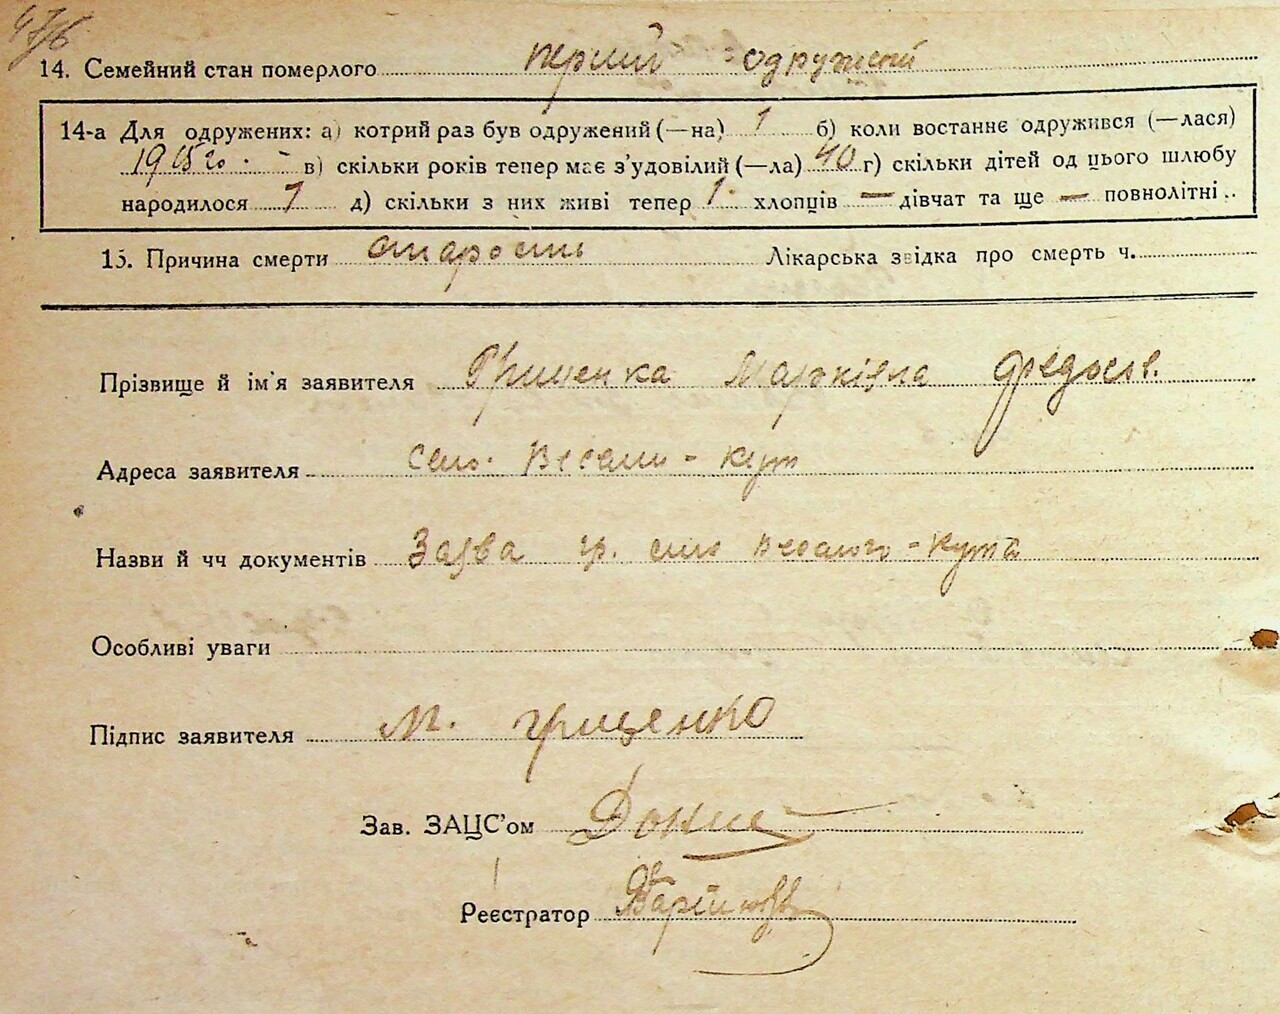 14. Семейний стан померлого перший одружений
14-а Для одружених: а) котрий раз був одружений (—на) 1 б) коли востаннє одружився (—лася)
1905 го. - в) скільки років тепер має з'удовілий (—ла) 40 г) скільки дітей од цього шлюбу
народилося 1 д) скільки з них живі тепер 1. хлопців — дівчат та ще — повнолітні..
15. Причина смерти старость Лікарська звідка про смерть ч.
Прізвище й ім'я заявителя Марківна
Адреса заявителя село. Весели-кут
Назви й чч документів Заява гр. село Веселого-Кута
Особливі уваги
Підпис заявителя М. грищенко
Зав. ЗАЦС'ом
Реєстратор